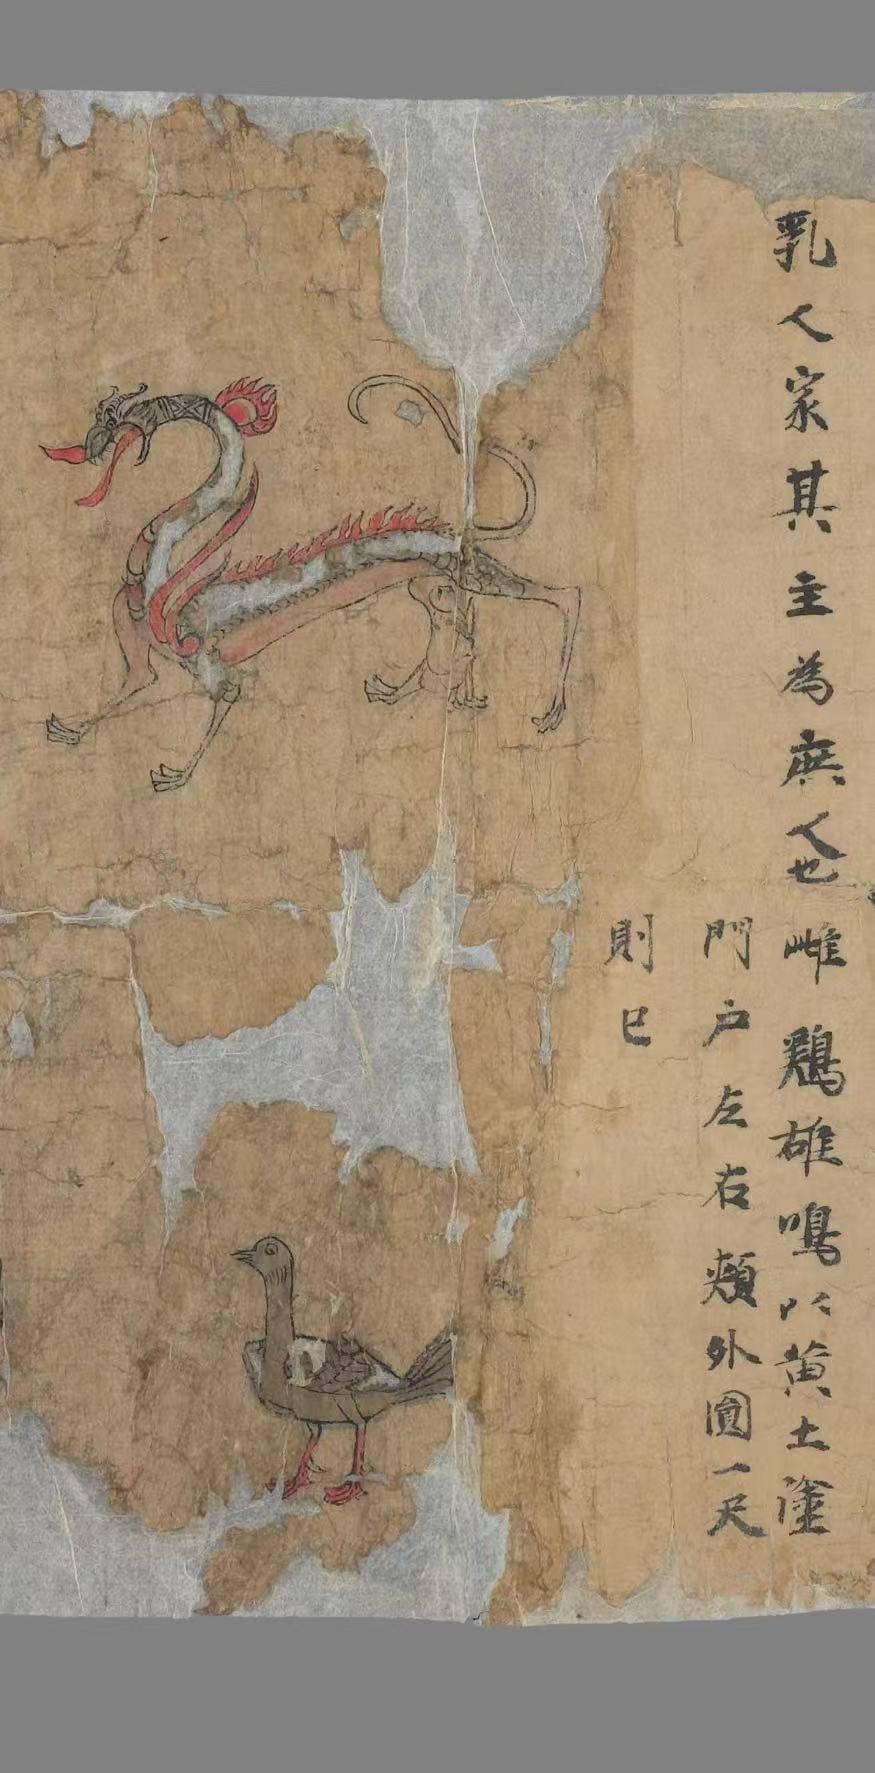 乳人家其主為庶人也雌鷄雄鳴以黃土塗
門户左右頰外圓一尺
則已